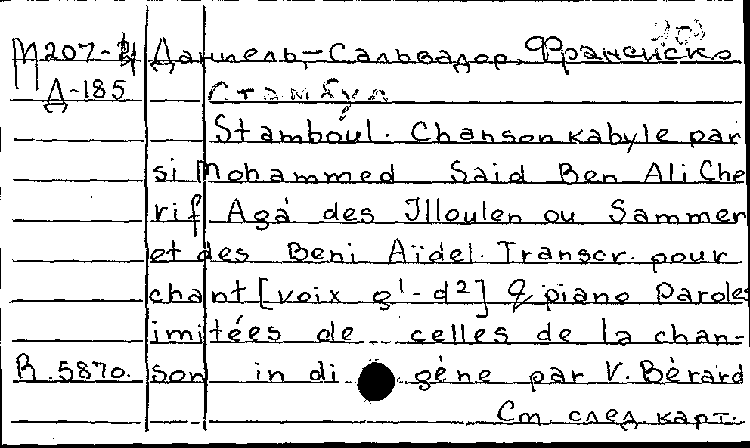 М207-4 Даниель-Сальвадор, Франсиско
Д-185 Стамбул
Stamboul. Chanson kabyle par
si Mohammed Said Ben Ali Che
rif Agà des Illoulen ou Sammer
et des Beni Aïdel. Transcr. pour
chant [voix g¹-d²] & piano Paroles
imitées de celles de la chan-
R.5870. son indigène par V. Bérard
См след карт.